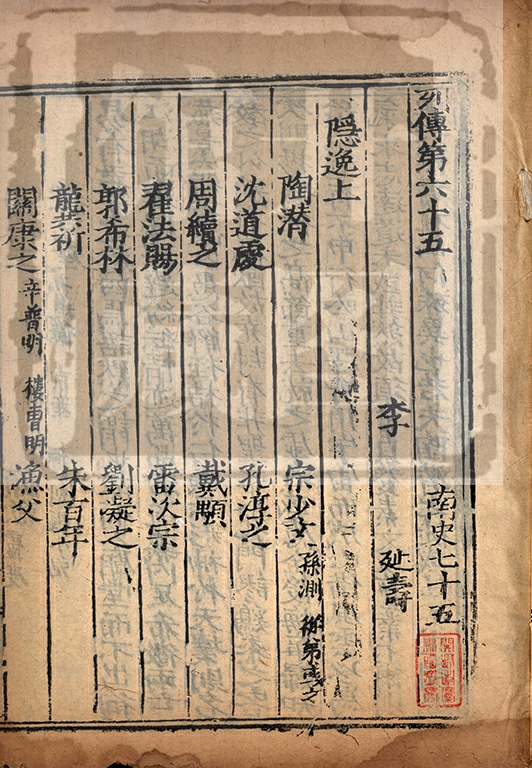 列傳第六十五 南史七十五
李 延壽
隱逸上
陶潜 宗少文 孫測 從弟彧之
沈道虔 孔淳之
周續之 戴顒
翟法賜 雷次宗
郭希林 劉凝之
龔祈 朱百年
關康之 辛普明 樓曹明 漁父